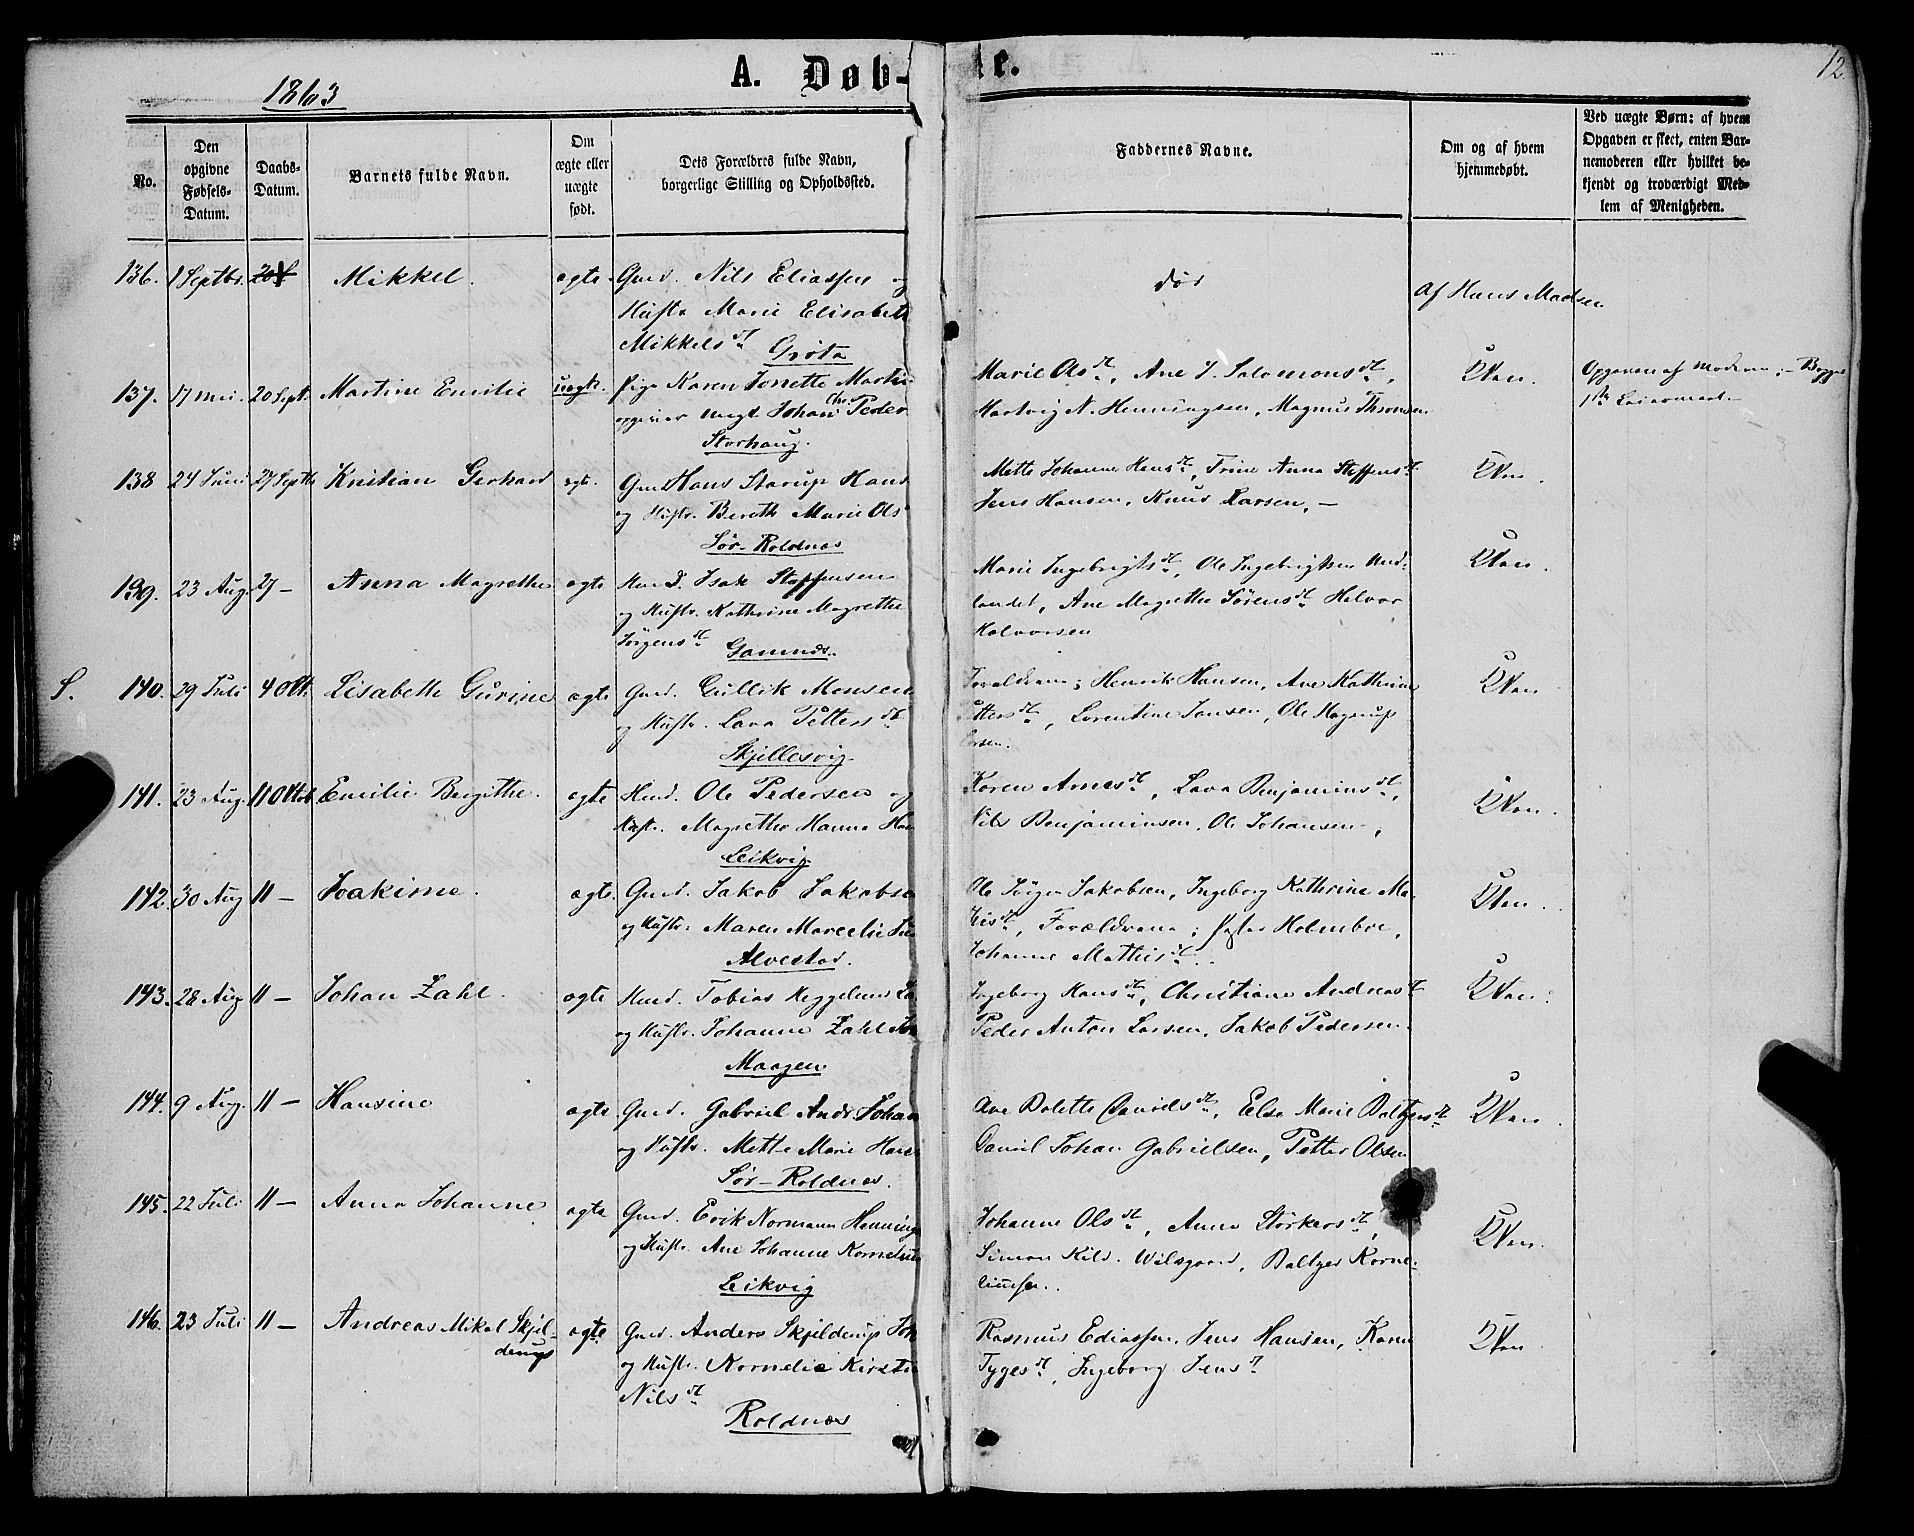 1863
A. Døb-
e.
12.
No.
Den opgivne Fødsels-Datum.
Daabs-Datum.
Barnets fulde Navn.
Om ægte eller uægte født.
Dets Forældres fulde Navn, borgerlige Stilling og Opholdssted.
Faddernes Navne.
Om og af hvem hjemmedøbt.
Ved uægte Børn: af hvem Opgaven er skeet, enten Barnemoderen eller hvilket bekjendt og troværdigt Medlem af Menigheden.
136. 1 Septbr. Mikkel. ægte. Gmd. Nils Eliassen og
Hustr Marie Elisabeth
Mikkelsdt
Grøta
død
Af Hans Madsen
137. 17 Mai. 20 Sept. Martine Emilie uægte. Pige Karen Jonette Martin
opgiver Johan Chr. Peder
Storhaug.
Marie Olsdt, Ane J. Salomonsdt,
Hartvig N. Henningsen, Magnus Thomsen
Opgaven af Moderen; – Begges
1ste Leiermaal
138 24 Juni 27 Septb Kristian Gerhard ægte. Gmd Hans Starup Hans
og Hustr. Bereth Marie Ols
Sør-Roldnæs
Mette Johanne Hansdt, Trine Anna Steffensdt
Jens Hansen, Knud Larsen, –
139. 23 Aug. 27 – Anna Magrethe ægte Isak Steffensen
og Hustr. Kathrine Magrethe
Jørgensdt
Gamnes.
Marie Ingebrigtsdt, Ole Ingebrigtsen And-
landet, Ane Magrethe Sørensdt Halvor
Halvorsen
S. 140. 29 Juli 4 Okt. Lisabeth Gurine ægte Gmd. Gullik Monsen
og Hustr. Lava Pettersdt
Skjellesvig
Forældrene; Henrik Hansen, Ane Kathrine
Lorentine Jansen, Ole Hagerup
141. 23 Aug. 11 Oktob. Emilie Bergithe. ægte Ole Pedersen og
Hustr. Magrethe Hanna Han
Leikvig
Karen Arnesdt, Lava Benjaminsdt,
Nils Benjaminsen, Ole Johansen,
142. 30 Aug 11 – Joakime. ægte. Gmd. Jakob Jakobsen
og Hustr: Maren Marcelie
Alvestad.
Ole Jørgen Jakobsen, Ingeborg Kathrine Ma-
Forældrene; Peter Holmboe,
Johanne Mathisdt.
143. 28 Aug 11 – Johan Zahl. ægte Tobias Heggelund
og Hustr. Johanne Zahl
Maagen
Ingeborg Hansdt, Christiane Andreasdt
Peder Anton Larsen, Jakob Pedersen.
144. 9 Aug. 11 – Hansine ægte. Gmd. Gabriel Andr. Johan
og Hustr. Mette Marie Hans
Sør-Roldnæs.
Ane Bolette Davidsdt, Else Marie Baltzersdt
Daniel Johan Gabrielsen, Petter Olsen
145. 22 Juli 11 – Anna Johanne ægte Gmd. Erik Normann Henning
og Hustr. Ane Johanne Kornelius
Leikvig
Johanne Olsdt, Anne Størkersdt,
Simon Kild. Wilsgaard, Baltzer Korne-
liussen.
146. 23 Juli 11 – Andreas Mikal Skjel-
derup
ægte Gmd. Anders Skjelderup Joh
og Hustr. Kornelie Kirstine
Nilsdt
Roldnæs
Rasmus Ediassen, Jens Hansen, Karen
Tygesdt, Ingeborg Jensdt